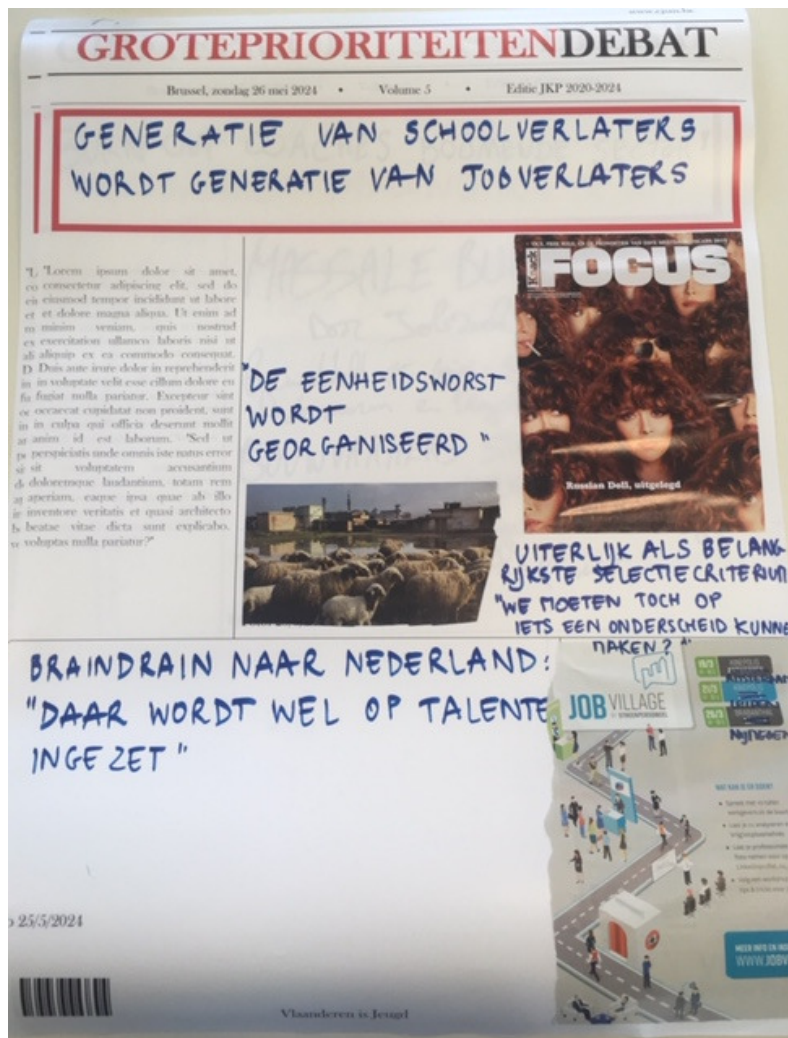 GROTEPRIORITEITENDEBAT
Brussel, zondag 26 mei 2024 • Volume 5 • Editie JKP 2020-2024
GENERATIE VAN SCHOOLVERLATERS
WORDT GENERATIE VAN JOBVERLATERS
"Lorem ipsum dolor sit amet,
consectetur adipiscing elit, sed do
eiusmod tempor incididunt ut labore
et dolore magna aliqua. Ut enim ad
minim veniam, quis nostrud
exercitation ullamco laboris nisi ut
aliquip ex ea commodo consequat.
Duis aute irure dolor in reprehenderit
in voluptate velit esse cillum dolore eu
fugiat nulla pariatur. Excepteur sint
occaecat cupidatat non proident, sunt
in culpa qui officia deserunt mollit
anim id est laborum. "Sed ut
perspiciatis unde omnis iste natus error
sit voluptatem accusantium
doloremque laudantium, totam rem
aperiam, eaque ipsa quae ab illo
inventore veritatis et quasi architecto
beatae vitae dicta sunt explicabo.
voluptas nulla pariatur?"
"DE EENHEIDSWORST
WORDT
GEORGANISEERD"
Knack
FOCUS
Russian Doll, uitgelegd
UITERLIJK ALS BELANG
RIJKSTE SELECTIECRITERIUM
"WE MOETEN TOCH OP
IETS EEN ONDERSCHEID KUNNE
MAKEN?"
BRAINDRAIN NAAR NEDERLAND:
"DAAR WORDT WEL OP TALENTE
INGEZET"
JOB VILLAGE
NIJMEGEN
WAT KAN JE ER DOEN?
MEER INFO EN IN
WWW.JOBV
25/5/2024
Vlaanderen is Jeugd